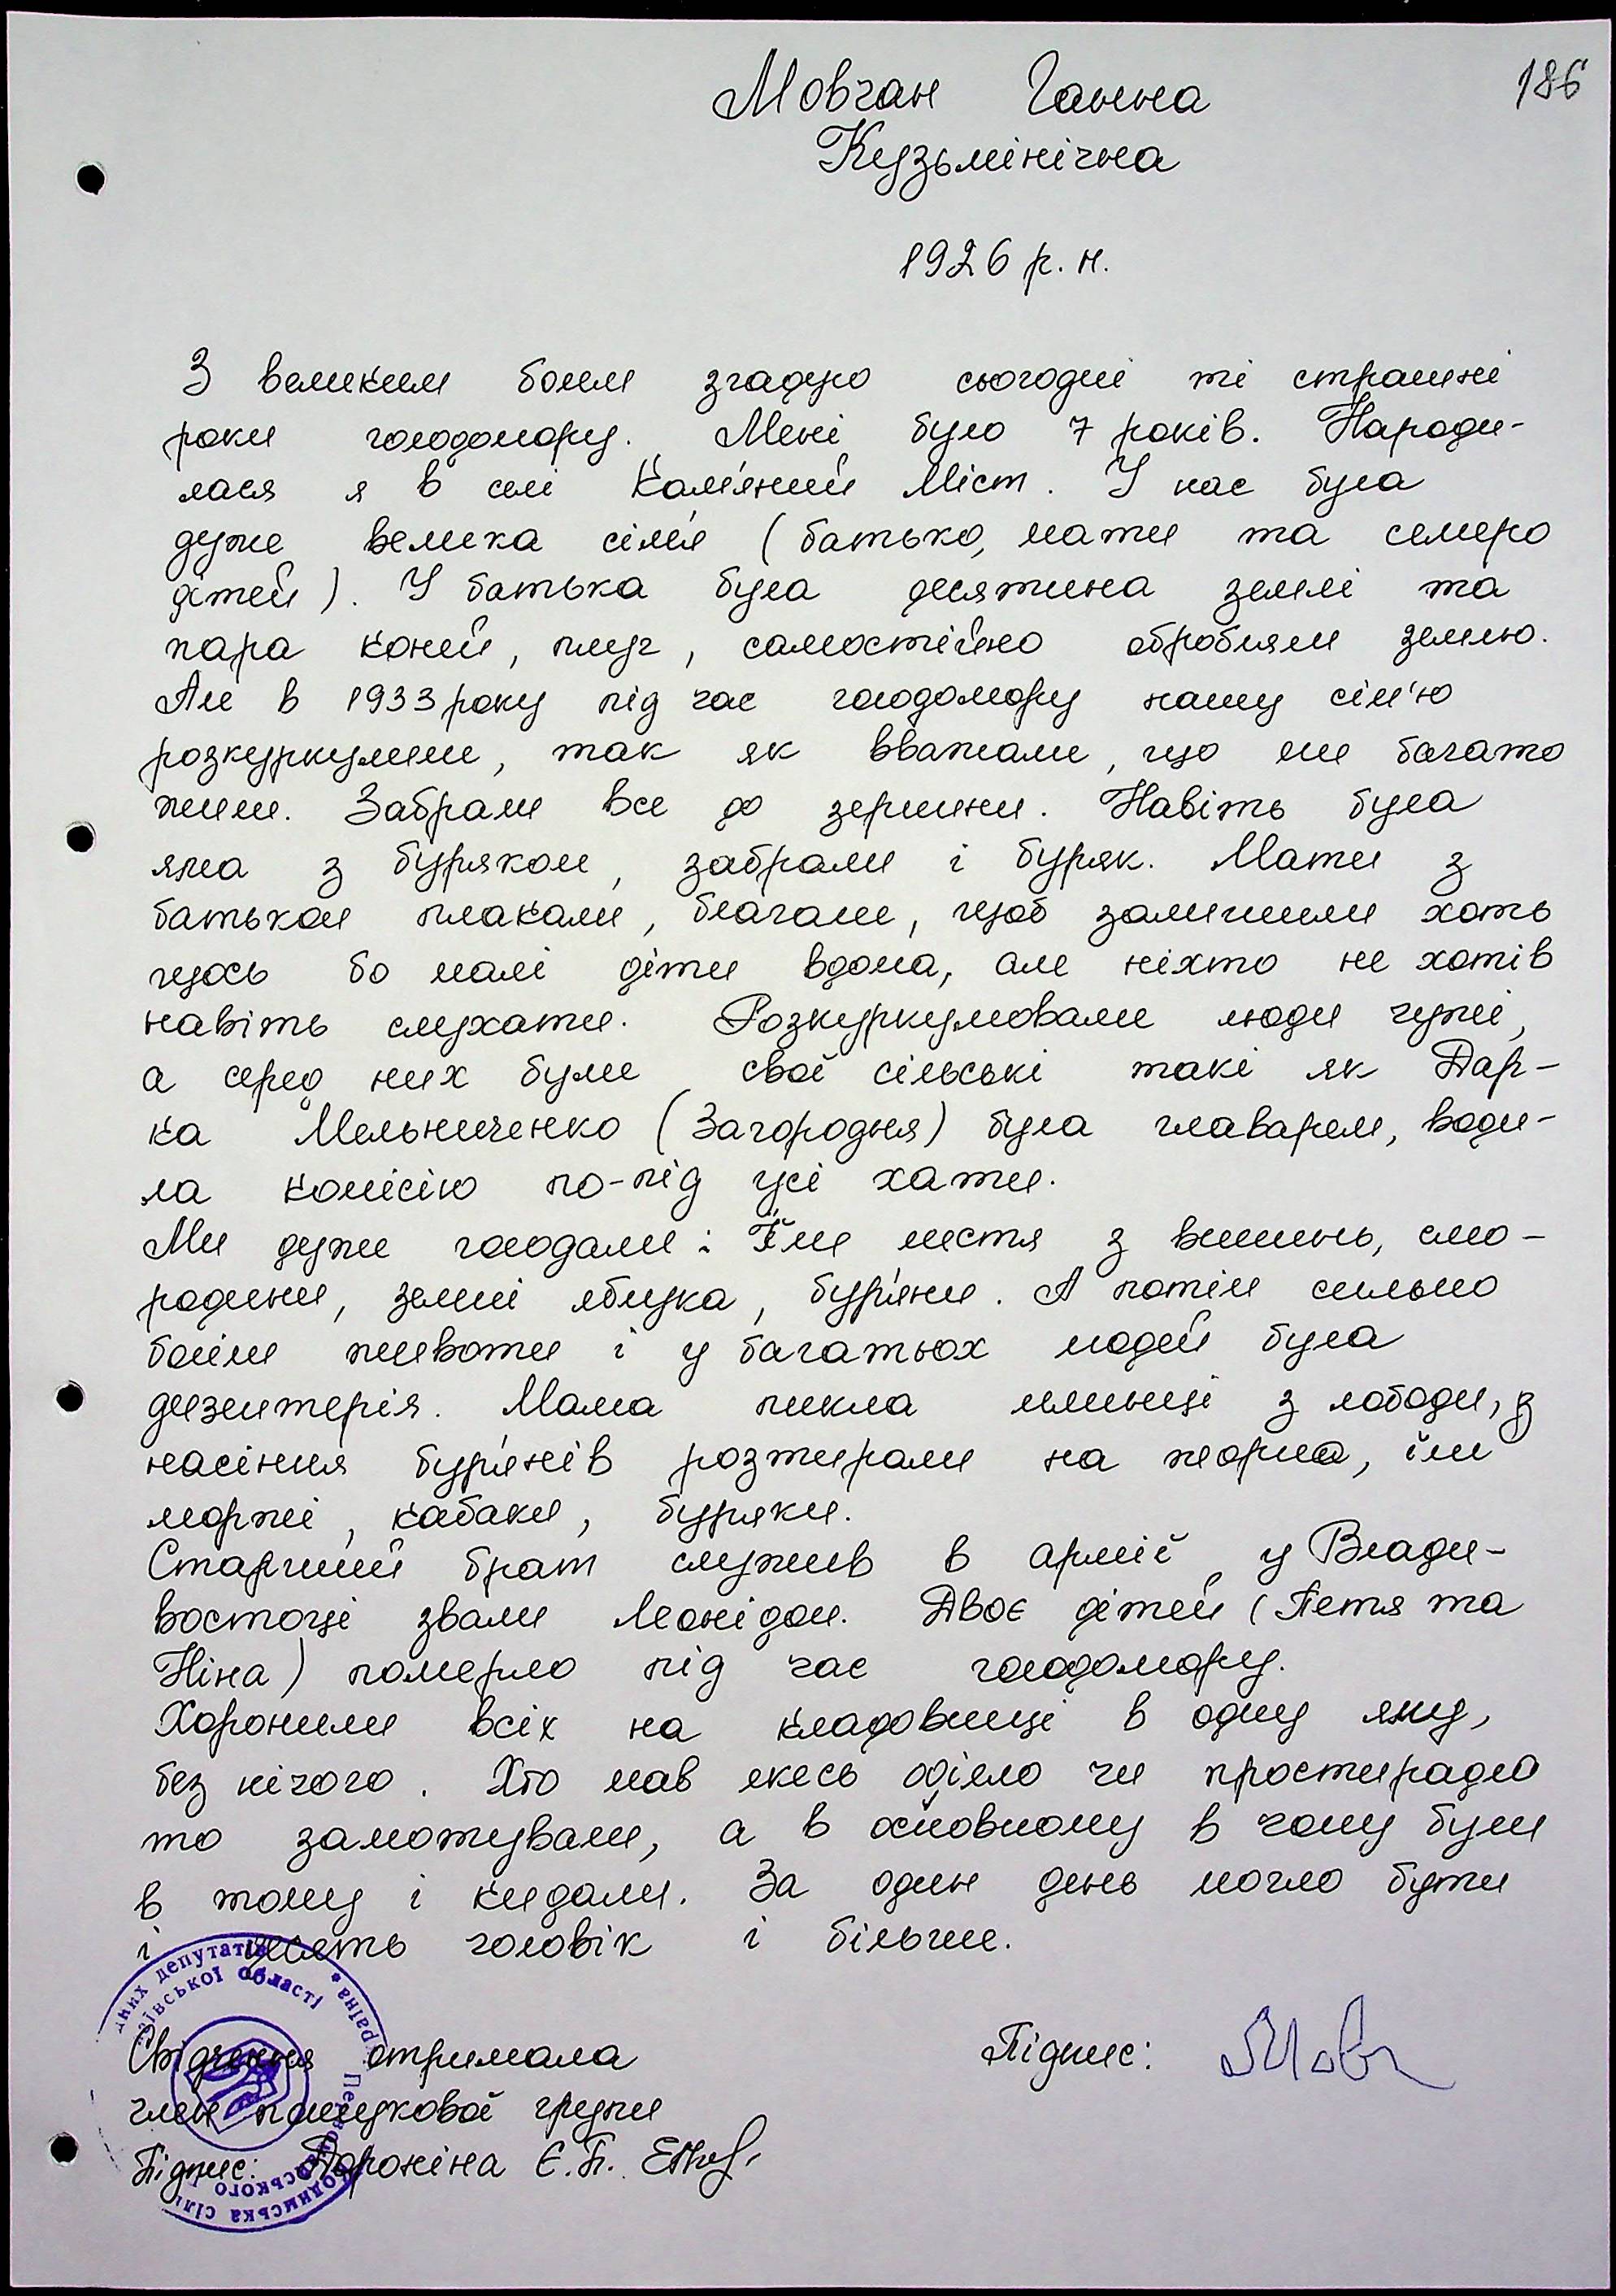 186
Мовчан Ганна
Кузьмінічна
1926 р. н.
З великим болем згадую сьогодні ті страшні
роки голодомору. Мені було 7 років. Народи-
лася я в селі Кам'яний Міст. У нас була
дуже велика сім'я (батько, мати та семеро
дітей). У батька була десятина землі та
пара коней, плуг, самостійно обробляли землю.
Але в 1933 року під час голодомору нашу сім'ю
розкуркулили, так як вважали, що ми багато
жили. Забрали все до зернини. Навіть була
яма з буряком, забрали і буряк. Мати з
батьком плакали, благали, щоб залишили хоть
щось бо малі діти вдома, але ніхто не хотів
навіть слухати. Розкуркулювали люди чужі,
а серед них були свої сільські такі як Дар-
ка Мельниченко (Загородня) була главарем, води-
ла комісію по-під усі хати.
Ми дуже голодали: Їли листя з вишень, смо-
родини, земні яблука, бур'яни. А потім сильно
боліли животи і у багатьох людей була
дизентерія. Мама пикла млинці з лободи, з
насіння бур'янів розтирали на жорна, їли
моржі, кабаки, буряки.
Старший брат служив в армії у Влади-
востоці звали Леонідом. Двоє дітей (Петя та
Ніна) померло під час голодомору.
Хоронили всіх на кладовищі в одну яму,
без нічого. Хто мав якесь оділо чи простирадло
то замотували, а в основному в чому були
в тому і кидали. За один день могло бути
і десять чоловік і більше.
Свідчення отримала
член пошукової групи
Підпис: Дороніна Є. П.
Підпис: Мовч
них депутатів
ївської області
Україна
Первомайського
сіл